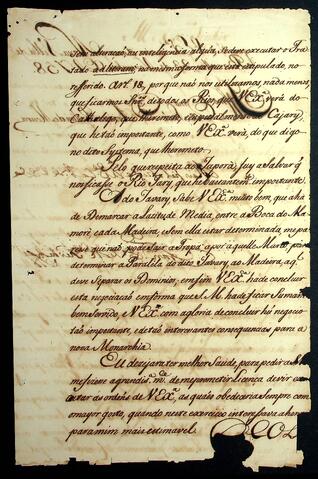 sem alteração, ou inteligencia algũa, se deve executar o Tra-
tado ad literam, na mesma forma que está estipulado, no
referido Art.º 18, porque não nos utilizamos, nada menos,
que ficarmos Snr.ˢ de todos os Rios que V Ex.ª verá do
que he tão importante, como V Ex.ª verá, do que digo
no dito Systema, que lhe remeto.
Pelo que respeita ao Jupurá, fuy a salvar q̃
notificasse o Rio Jary, que he bauantem.ᵗᵉ importante.
A do Javary, sabe V Ex.ª muito bem, que a ha
de Demarcar a Latitude Media, entre a Boca do Ma-
moré, e a da Madeira; e sem ella estar determinada, me pa-
rece que não pode sair a Tropa, a por aquelle Marco, para
determinar a Paralela do dito Javary, ao Madeira, a q̃
deve separar os Dominios, em fim V Ex.ª ha de concluir
esta negociação em forma que S. M. ha de ficar sumam.ᵗᵉ
bem servido, e V Ex.ª com a gloria de concluir hũ nego-
cio tão importante, e de tão interesantes consequencias para a
nova Monarchia.
Eu desejara ter melhor saude, para pedir a
me fizesse a grandis.ᵐᵃ m.ᶜᵉ de me prometer Licença de vir exe-
cutar as ordens de V Ex.ª, as quaes obedeceria sempre com
mayor gosto, quando neste exercicio interessava a hon-
para mim mais estimavel.